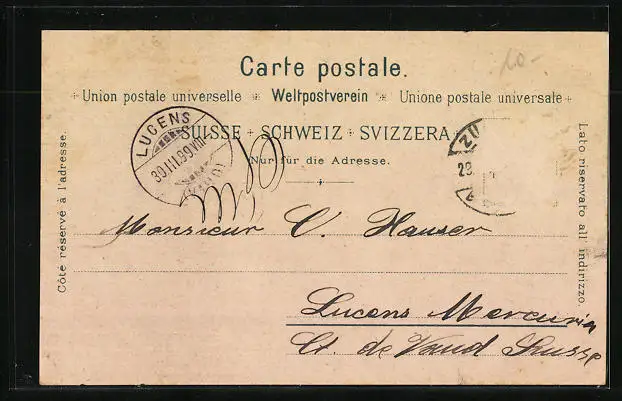 10-
Carte postale.
Union postale universelle * Weltpostverein * Unione postale universale
SUISSE + SCHWEIZ + SVIZZERA
Nur für die Adresse.
LUCENS
30.III.99.VIII
(VAUD)
ZÜ
29.
Côté réservé à l'adresse.
Lato riservato all' indirizzo.
Monsieur C. Hauser
Lucens
Ct. de Vaud